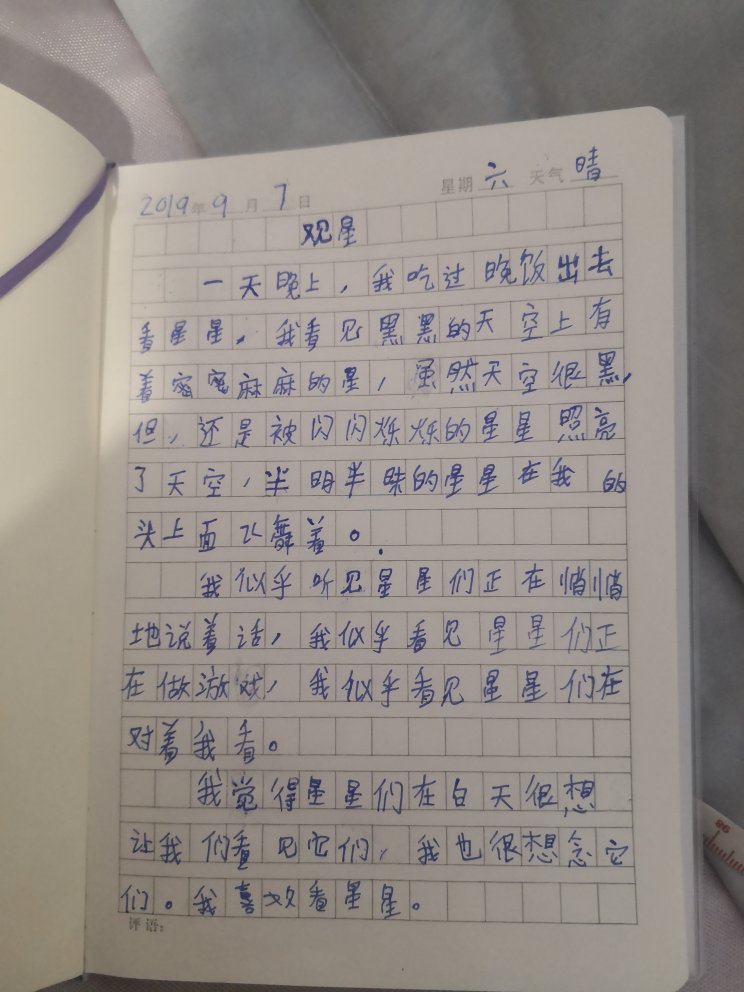 2019年9月7日 星期六 天气晴
观星
一天晚上，我吃过晚饭出去
看星星，我看见黑黑的天空上有
着密密麻麻的星，虽然天空很黑，
但，还是被闪闪烁烁的星星照亮
了天空，半明半昧的星星在我的
头上面飞舞着。
我似乎听见星星们正在悄悄
地说着话，我似乎看见星星们正
在做游戏，我似乎看见星星们在
对着我看。
我觉得星星们在白天很想
让我们看见它们，我也很想念它
们。我喜欢看星星。
评语：